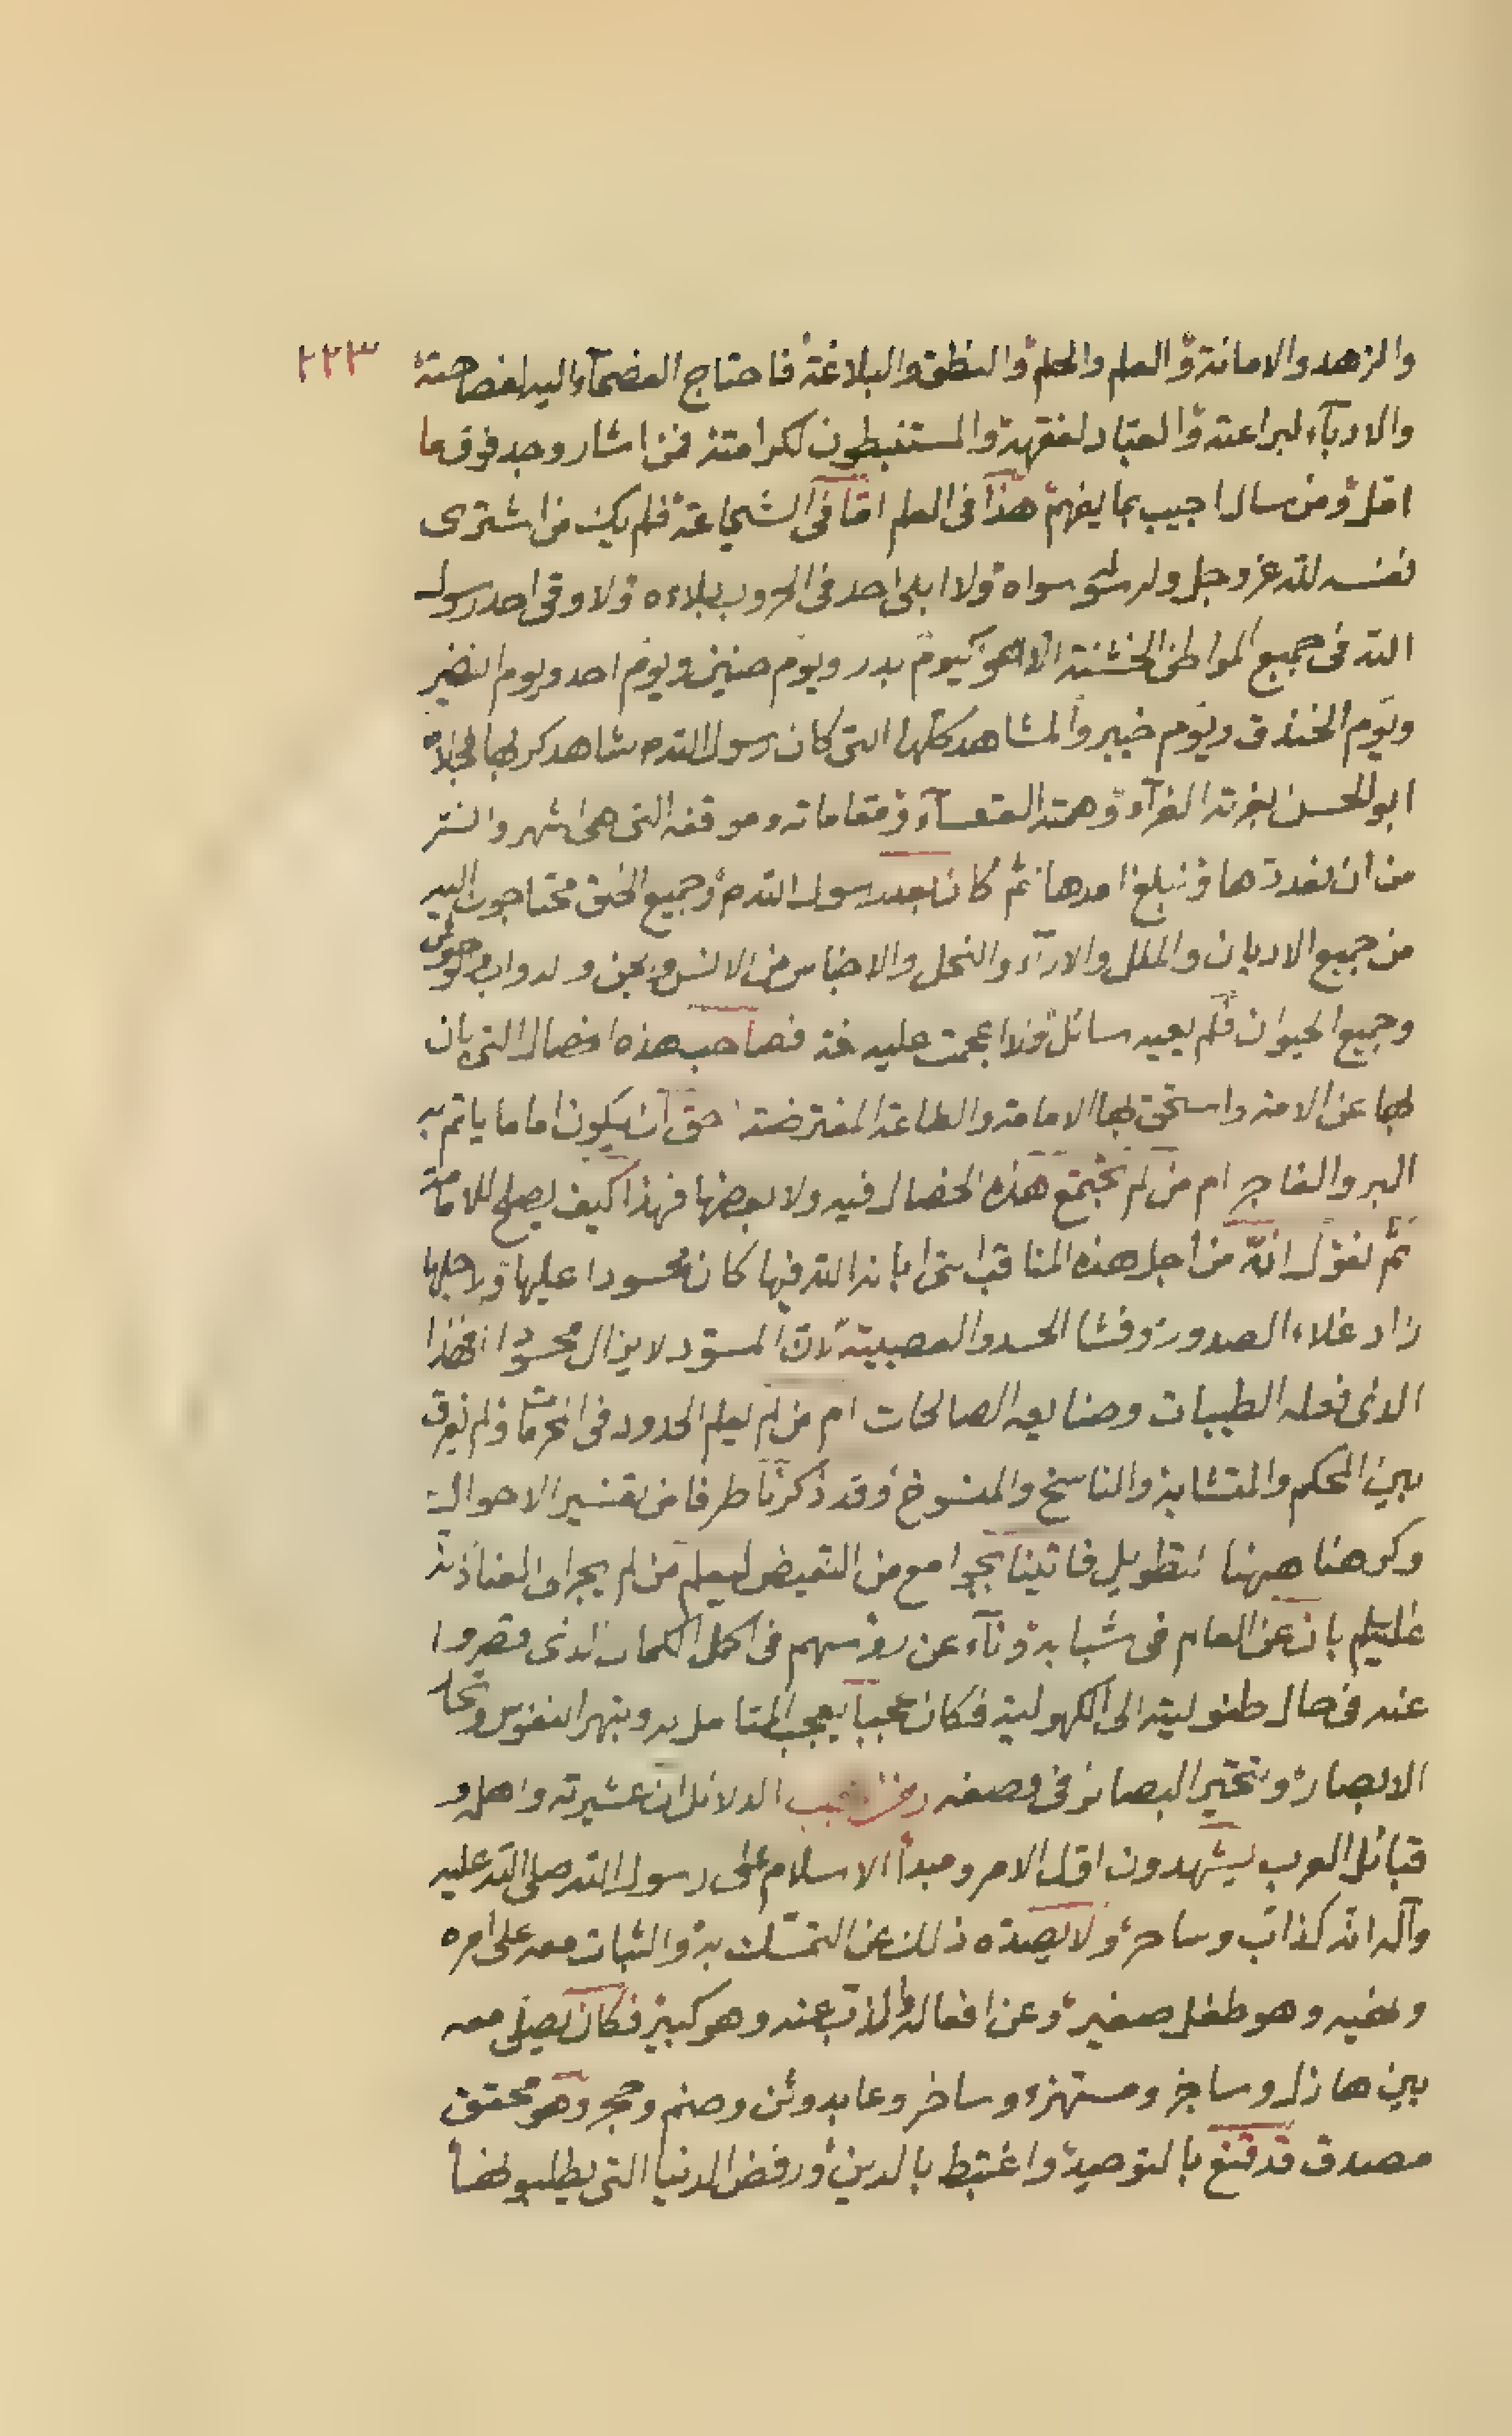 ٢٢٣
والزهد والامانة والعلم والحلم والنطق والبلاغة فاحتاج الفصحآء اليه لفصاحته
والادبآء لبراعته والعباد لفقهه والمستنبطون لكرامته فمن اشار وجد فوق ما
امل ومن سال اجيب بما يفهم هذا فى العلم امّا فى الشجاعة فلم يكن من اشترى
نفسه لله عز وجل ولرسوله سواه ولا ابلى احد فى الحروب بلاءه ولا وقى احد رسول
الله فى جميع المواطن الخشنة الا هو كيوم بدر ويوم حنين ويوم احد ويوم النضير
ويوم الخندق ويوم خيبر والمشاهد كلها التى كان رسول الله م شاهد كربها فجلاه
ابو الحسن بغرته الغرآء وهمته القعسآء ومقاماته وموقفه التى هى اشهر واكثر
من ان نعددها ونبلغ امدها ثم كان بعد رسول الله م وجميع الخلق محتاجون اليه
من جميع الاديان والملل والارآء والنحل والاجناس من الانس والجن و
وجميع الحيوان فلم يعيه سائل ولا اعجمت عليه لغة فصاحب هذه الخصال التى بان
بها عن الامة واستحق بها الامامة والطاعة المفترضة احق ان يكون اماما ياتم به
البر والفاجر ام من لم تجتمع هذه الخصال فيه ولا بعضها فهذا كيف يصلح للامامة
ثم نقول انّه من اجل هذه المناقب التى ابانه الله فيها كان محسودا عليها ولاجلها
زاد غلاء الصدور وفشا الحسد والعصبية لان المسوّد لا يزال محسودا فهذا
الذى فعله الطيبات وصنايعه الصالحات ام من لم يعلم الحدود فى ولم يفرق
بين المحكم والمتشابه والناسخ والمنسوخ وقد ذكرنا طرفا من تفسير الاحوال
وكرهنا هيهنا التطويل فاتينا بجوامع من ليعلم من لم يجر
بان عن العام فى شبابه ونآء عن رؤسهم فى اكمل الذى قصروا
عنه فى حال طفوليته الى الكهولية فكان عجبا يعجب المتامل به ويبهر النفوس
الابصار وتتحير البصائر فى وصفه ومن عجيب الدلائل ان عشيرته واهله و
قبائل العرب يشهدون اول الامر ومبدأ الاسلام على رسول الله صلى الله عليه
وآله انه كذاب وساحر ولا يصده ذلك عن التمسك به والثبات معه على امره
ونهيه وهو طفل صغير وعن افعاله والذب عنه وهو كبير فكان يصلى معه
بين هازل وساخر ومستهزء وساخر وعابد وثن وصنم وحجر وهو محقق
مصدق قد قنع بالتوحيد واغتبط بالدين ورفض الدنيا التى يطلبونها